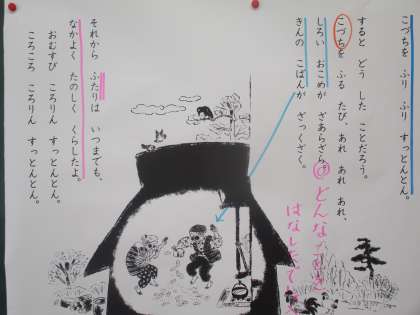 こづちを ふり ふり すっとんとん。
すると どう した ことだろう。
こづちを ふる たび、あれ あれ あれ、
しろい おこめが ざあらざら。
きんの こばんが ざっくざく。
どんな
はなし
それから ふたりは いつまでも、
なかよく たのしく くらしたよ。
おむすび ころりん すっとんとん。
ころころ ころりん すっとんとん。